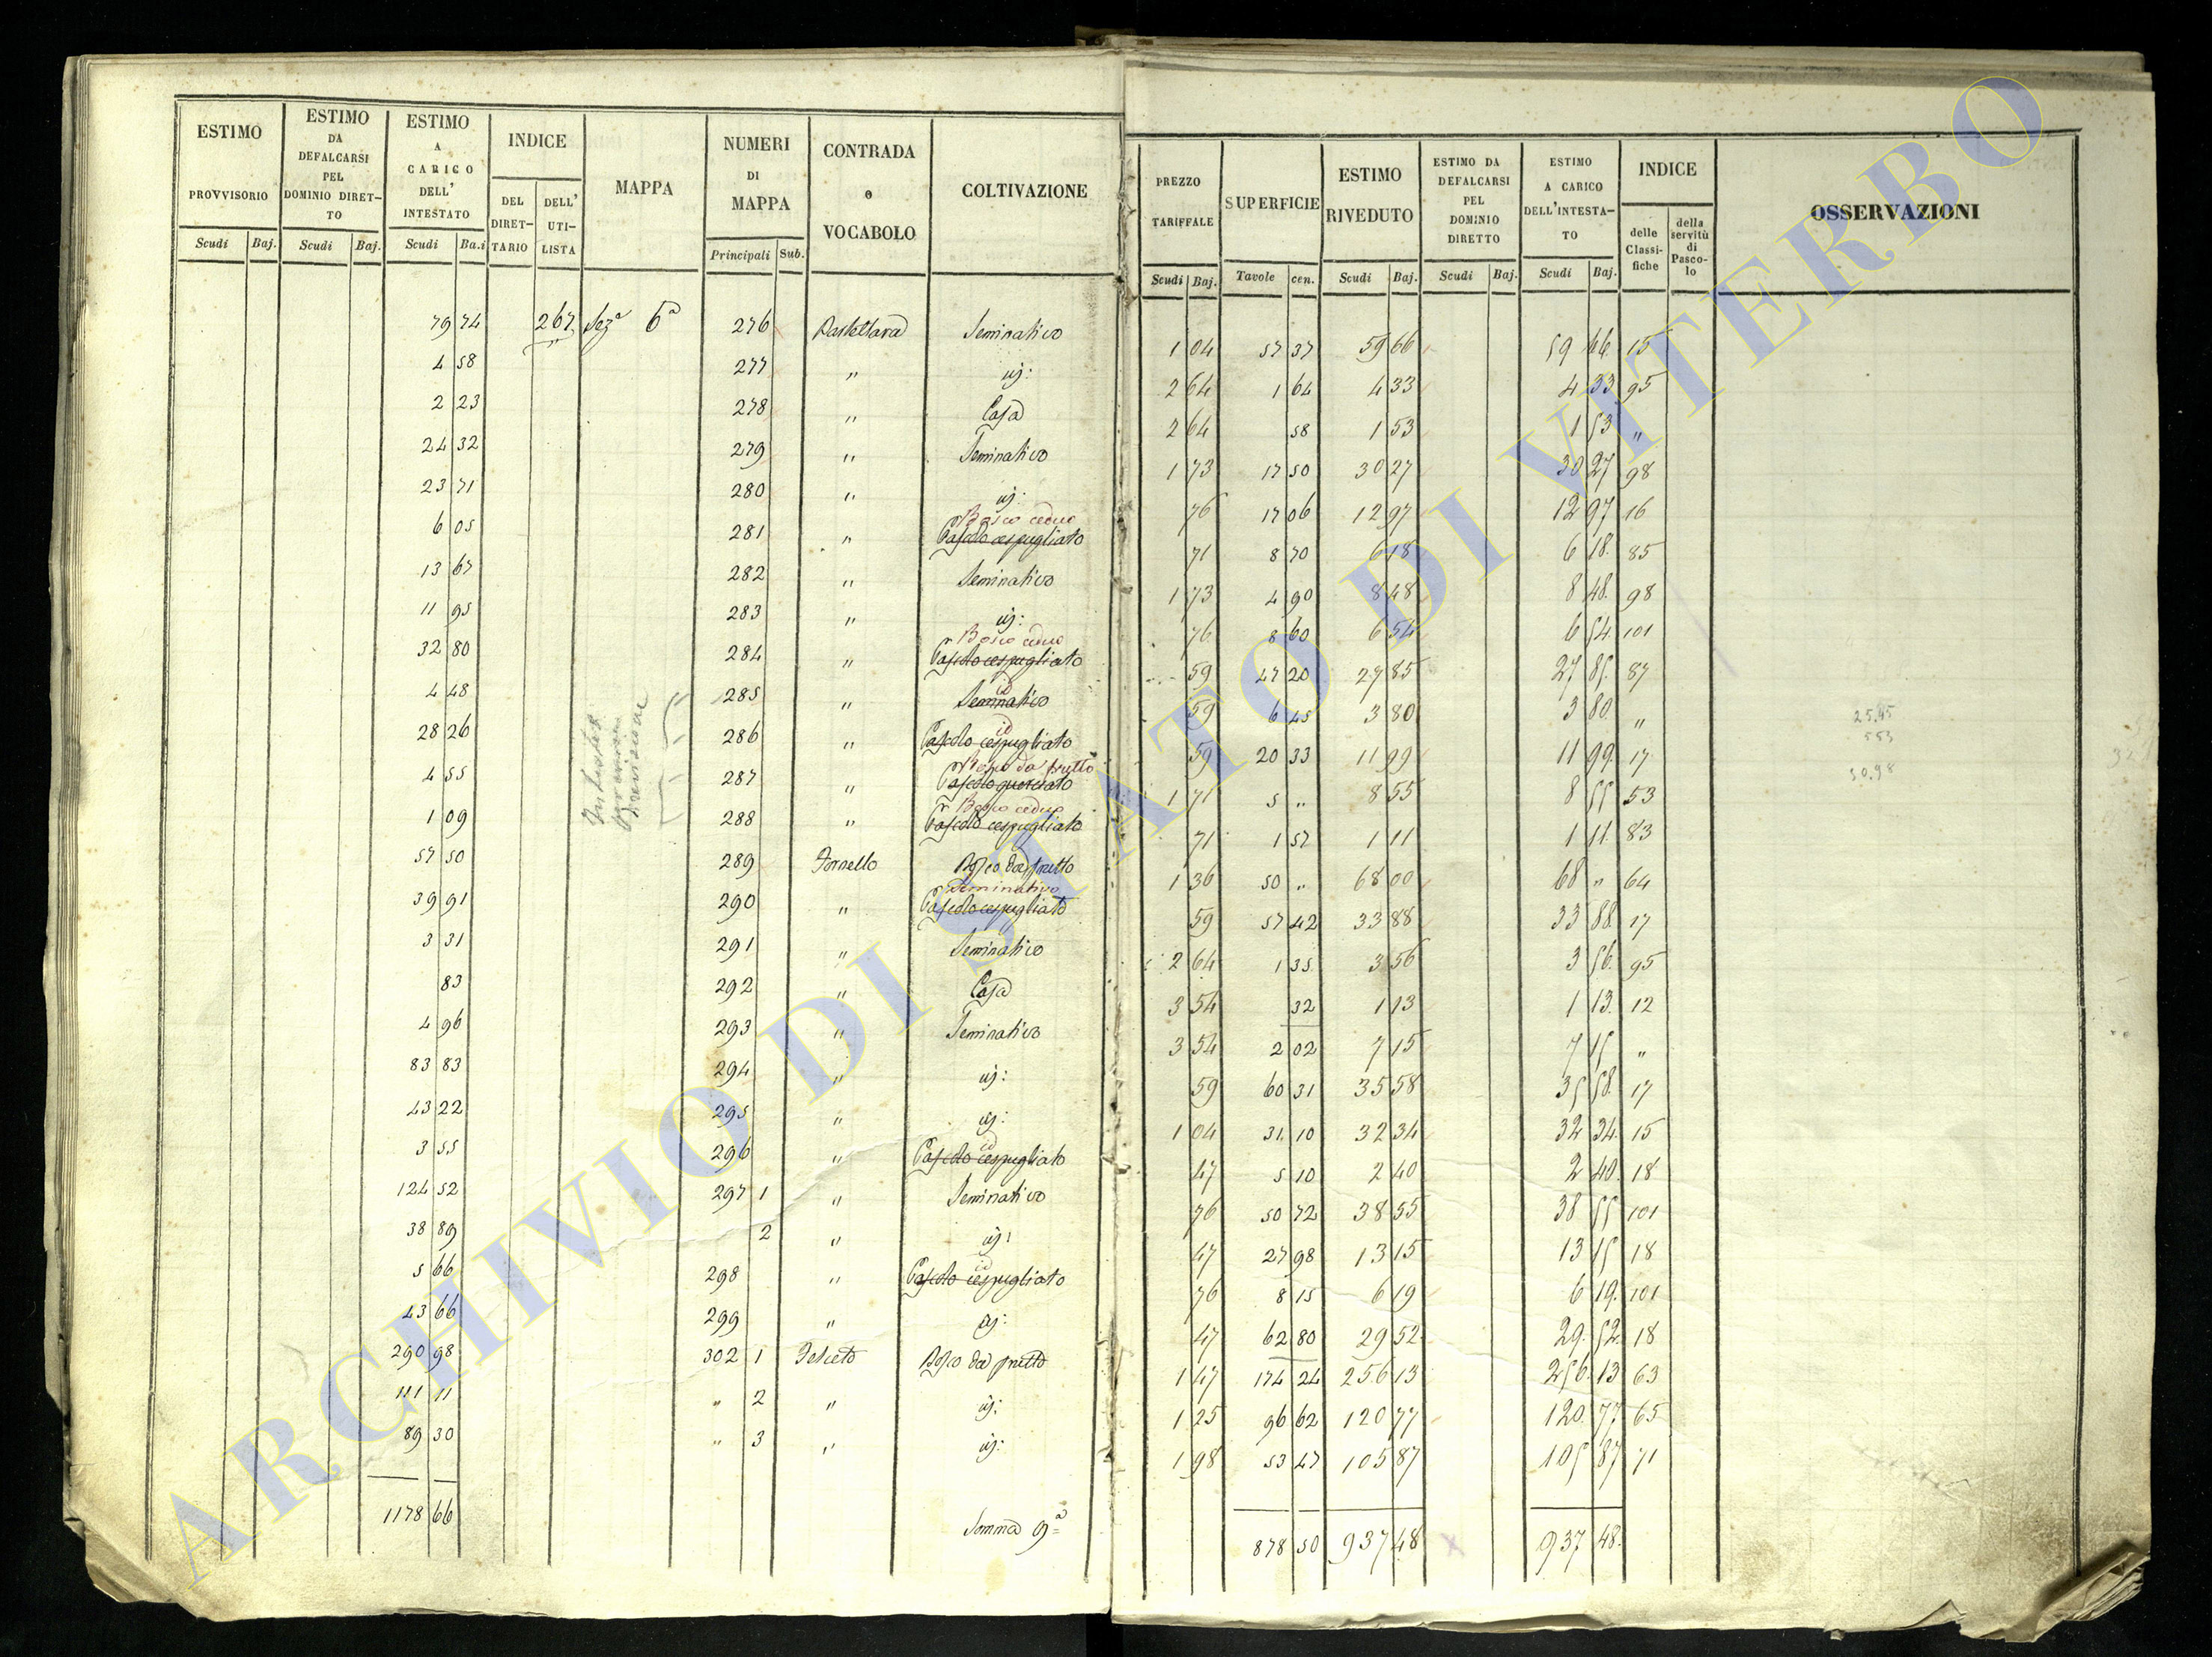 ESTIMO PROVVISORIO | ESTIMO DA DEFALCARSI PEL DOMINIO DIRETTO | ESTIMO A CARICO DELL' INTESTATO | INDICE | MAPPA | NUMERI DI MAPPA | CONTRADA o VOCABOLO | COLTIVAZIONE | PREZZO TARIFFALE | SUPERFICIE | ESTIMO RIVEDUTO | ESTIMO DA DEFALCARSI PEL DOMINIO DIRETTO | ESTIMO A CARICO DELL'INTESTATO | INDICE | OSSERVAZIONI
DEL DIRETTARIO | DELL' UTILISTA | delle Classifiche | della servitù di Pascolo
Scudi | Baj. | Scudi | Baj. | Scudi | Ba.i | Principali | Sub. | Scudi | Baj. | Tavole | cen. | Scudi | Baj. | Scudi | Baj. | Scudi | Baj.
79 74 | 267 | Sez.ª 6ª | 276 | Seminativo | 1 04 | 57 37 | 59 66 | 59 66 | 15
4 58 | 277 | " | id: | 2 64 | 1 64 | 4 33 | 4 33 | 95
2 23 | 278 | " | Casa | 2 64 | 58 | 1 53 | 1 53 | "
24 32 | 279 | " | Seminativo | 1 73 | 17 50 | 30 27 | 30 27 | 98
23 71 | 280 | " | id: | 76 | 17 06 | 12 97 | 12 97 | 16
Bosco ceduo
6 05 | 281 | " | Pascolo cespugliato | 71 | 8 70 | 6 18 | 6 18 | 85
13 67 | 282 | " | Seminativo | 1 73 | 4 90 | 8 48 | 8 48 | 98
11 95 | 283 | " | id: | 76 | 8 60 | 6 54 | 6 54 | 101
Bosco ceduo
32 80 | 284 | " | Pascolo cespugliato | 59 | 47 20 | 27 85 | 27 85 | 87
id
4 48 | 285 | " | Seminativo | 59 | 6 45 | 3 80 | 3 80 | "
id
28 26 | 286 | " | Pascolo cespugliato | 59 | 20 33 | 11 99 | 11 99 | 17
Bosco da frutto
4 55 | 287 | " | Pascolo querciato | 1 71 | 5 " | 8 55 | 8 55 | 53
Bosco ceduo
1 09 | 288 | " | Pascolo cespugliato | 71 | 1 57 | 1 11 | 1 11 | 83
57 50 | 289 | Fornello | Bosco da frutto | 1 36 | 50 " | 68 00 | 68 " | 64
Seminativo
39 91 | 290 | " | Pascolo cespugliato | 59 | 57 42 | 33 88 | 33 88 | 17
3 31 | 291 | " | Seminativo | 2 64 | 1 35 | 3 56 | 3 56 | 95
83 | 292 | " | Casa | 3 54 | 32 | 1 13 | 1 13 | 12
4 96 | 293 | " | Seminativo | 3 54 | 2 02 | 7 15 | 7 15 | "
83 83 | 294 | " | id: | 59 | 60 31 | 35 58 | 35 58 | 17
43 22 | 295 | " | id: | 1 04 | 31 10 | 32 34 | 32 34 | 15
id
3 55 | 296 | " | Pascolo cespugliato | 47 | 5 10 | 2 40 | 2 40 | 18
124 52 | 297 1 | " | Seminativo | 76 | 50 72 | 38 55 | 38 55 | 101
38 89 | 2 | " | id: | 47 | 27 98 | 13 15 | 13 15 | 18
id
5 66 | 298 | " | Pascolo cespugliato | 76 | 8 15 | 6 19 | 6 19 | 101
43 66 | 299 | " | id: | 47 | 62 80 | 29 52 | 29 52 | 18
290 98 | 302 1 | Bosco da frutto | 1 47 | 174 24 | 256 13 | 256 13 | 63
111 11 | " 2 | " | id: | 1 25 | 96 62 | 120 77 | 120 77 | 65
89 30 | " 3 | " | id: | 1 98 | 53 47 | 105 87 | 105 87 | 71
1178 66 | Somma 9ª | 878 50 | 937 48 | 937 48
25.45
553
30.98
ARCHIVIO DI STATO DI VITERBO